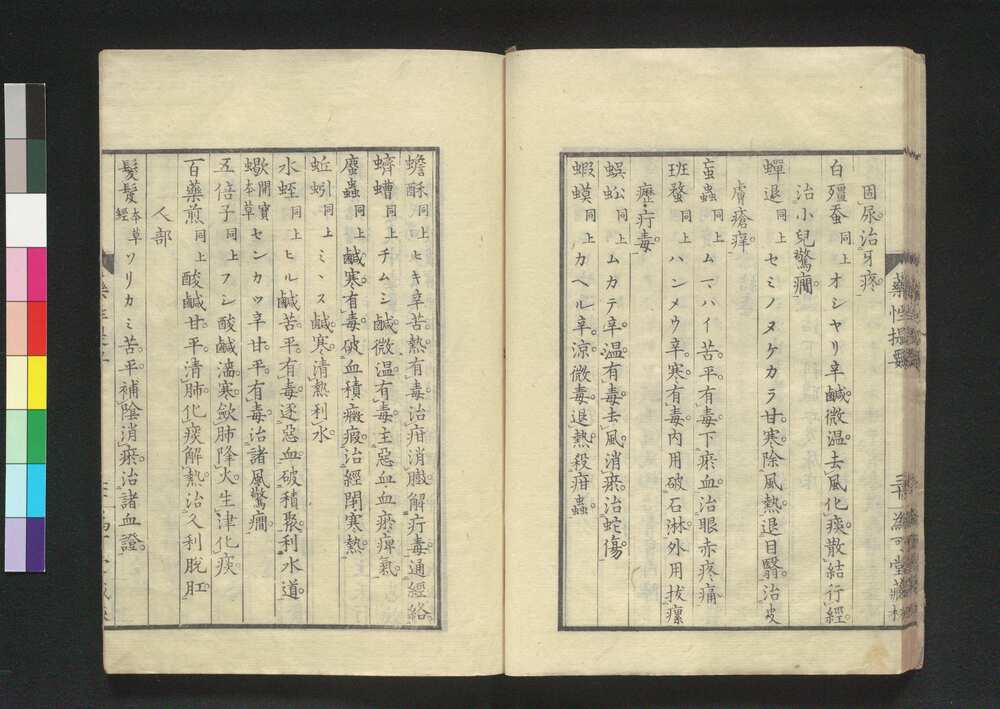 固尿。治牙疼。
白殭蚕同上オシヤリ辛鹹微温。去風化痰。散結行經。
治小兒驚癇。
蟬退同上セミノヌケカラ甘寒。除風熱。退目翳。治皮
膚瘡痒。
䖟蟲同上ムマハイ苦平有毒。下瘀血。治眼赤疼痛。
班蝥同上ハンメウ辛寒有毒。内用破石淋。外用拔瘰
癧疔毒。
蜈蚣同上ムカデ辛温有毒。去風消瘀。治蛇傷
蝦蟆同上カヘル辛涼微毒。退熱殺疳蟲。
蟾酥同上ヒキ辛苦熱有毒。治疳消臌。解疔毒。通經絡。
蠐螬同上チムシ鹹微温有毒。主惡血血瘀痺氣。
䗪蟲同上鹹寒有毒。破血積癥瘕。治經閉寒熱。
蚯蚓同上ミヽス鹹寒。清熱利水
水蛭同上ヒル鹹苦平有毒。逐惡血破積聚。利水道。
蠍開寶本草センカツ辛甘平有毒。治諸風驚癇。
五倍子同上フシ酸鹹濇寒。斂肺降火。生津化痰。
百藥煎同上酸鹹甘平。清肺化痰。解熱治久利脱肛
人部
髮髲本草經ソリカミ苦平。補陰消瘀。治諸血證。